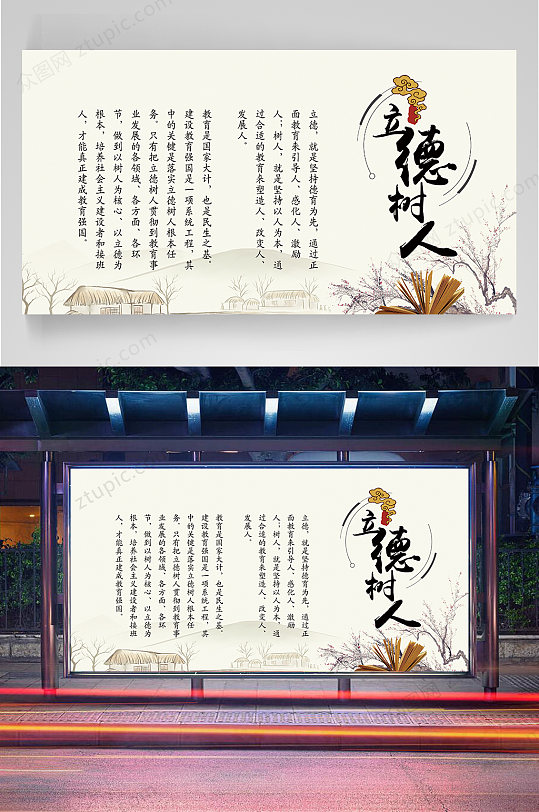 众图网
ztupic.com
立德树人
立德，就是坚持德育为先，通过正
面教育来引导人、感化人、激励
人；树人，就是坚持以人为本，通
过合适的教育来塑造人、改变人、
发展人。
教育是国家大计，也是民生之基。
建设教育强国是一项系统工程，其
中的关键是落实立德树人根本任
务。只有把立德树人贯彻到教育事
业发展的各领域、各方面、各环
节，做到以树人为核心、以立德为
根本，培养社会主义建设者和接班
人，才能真正建成教育强国。
立德树人
立德，就是坚持德育为先，通过正
面教育来引导人、感化人、激励
人；树人，就是坚持以人为本，通
过合适的教育来塑造人、改变人、
发展人。
教育是国家大计，也是民生之基。
建设教育强国是一项系统工程，其
中的关键是落实立德树人根本任
务。只有把立德树人贯彻到教育事
业发展的各领域、各方面、各环
节，做到以树人为核心、以立德为
根本，培养社会主义建设者和接班
人，才能真正建成教育强国。